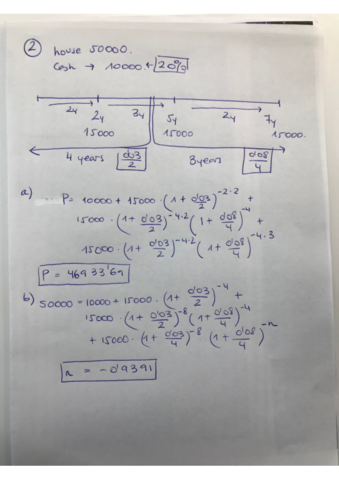 ② house 50000.
Cash → 10000 ← 20%
2y 3y 2y
2y 5y 7y
15000 15000 15000.
4 years 0'03/2 3 years 0'08/4
a) P = 10000 + 15000 · (1 + 0'03/2)^-2·2 +
15000 · (1 + 0'03/2)^-4·2 (1 + 0'08/4)^-4 +
15000 · (1 + 0'03/2)^-4·2 (1 + 0'08/4)^-4·3
P = 46933'69
b) 50000 = 10000 + 15000 · (1 + 0'03/2)^-4 +
15000 · (1 + 0'03/2)^-8 (1 + 0'08/4)^-4
+ 15000 · (1 + 0'03/4)^-8 (1 + 0'08/4)^-n
n = -0'9391